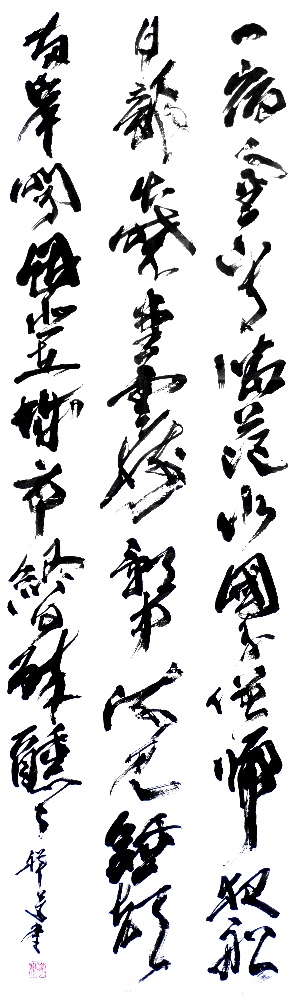 一宿金山寺微茫水國分僧歸夜船
月龍出曉堂雲樹影中流見鐘聲
兩岸聞因悲在城市終日醉醺々 書